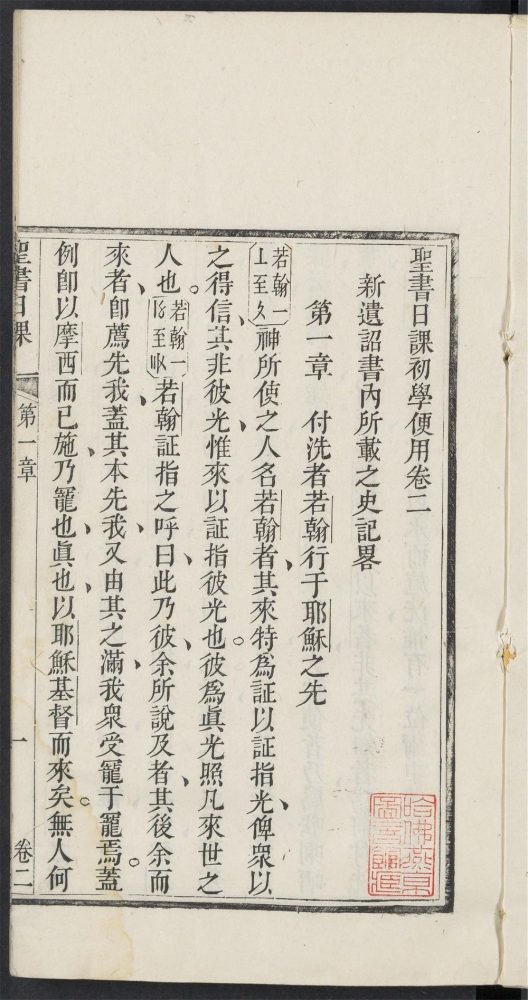 聖書日課初學便用卷二
新遺詔書內所載之史記畧
第一章 付洗者若翰行于耶穌之先
若翰一
上至久
神所使之人名若翰者、其來特爲証以証指光、俾衆以
之得信、其非彼光、惟來以証指彼光也。彼爲眞光照凡來世之
人也。
若翰一
若翰証指之呼曰、此乃彼、余所說及者、其後余而
來者、卽薦先我、蓋其本先我、又由其之滿我衆受寵于寵焉。蓋
例卽以摩西而已施、乃寵也、眞也、以耶穌基督而來矣。無人何
聖書日課
第一章
一
卷二
哈佛燕京
圖書館藏